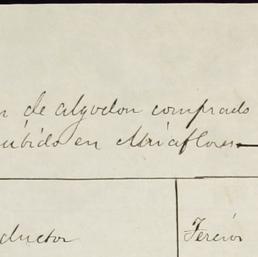 de algodon comprado
en Miraflores
ductor Tercios